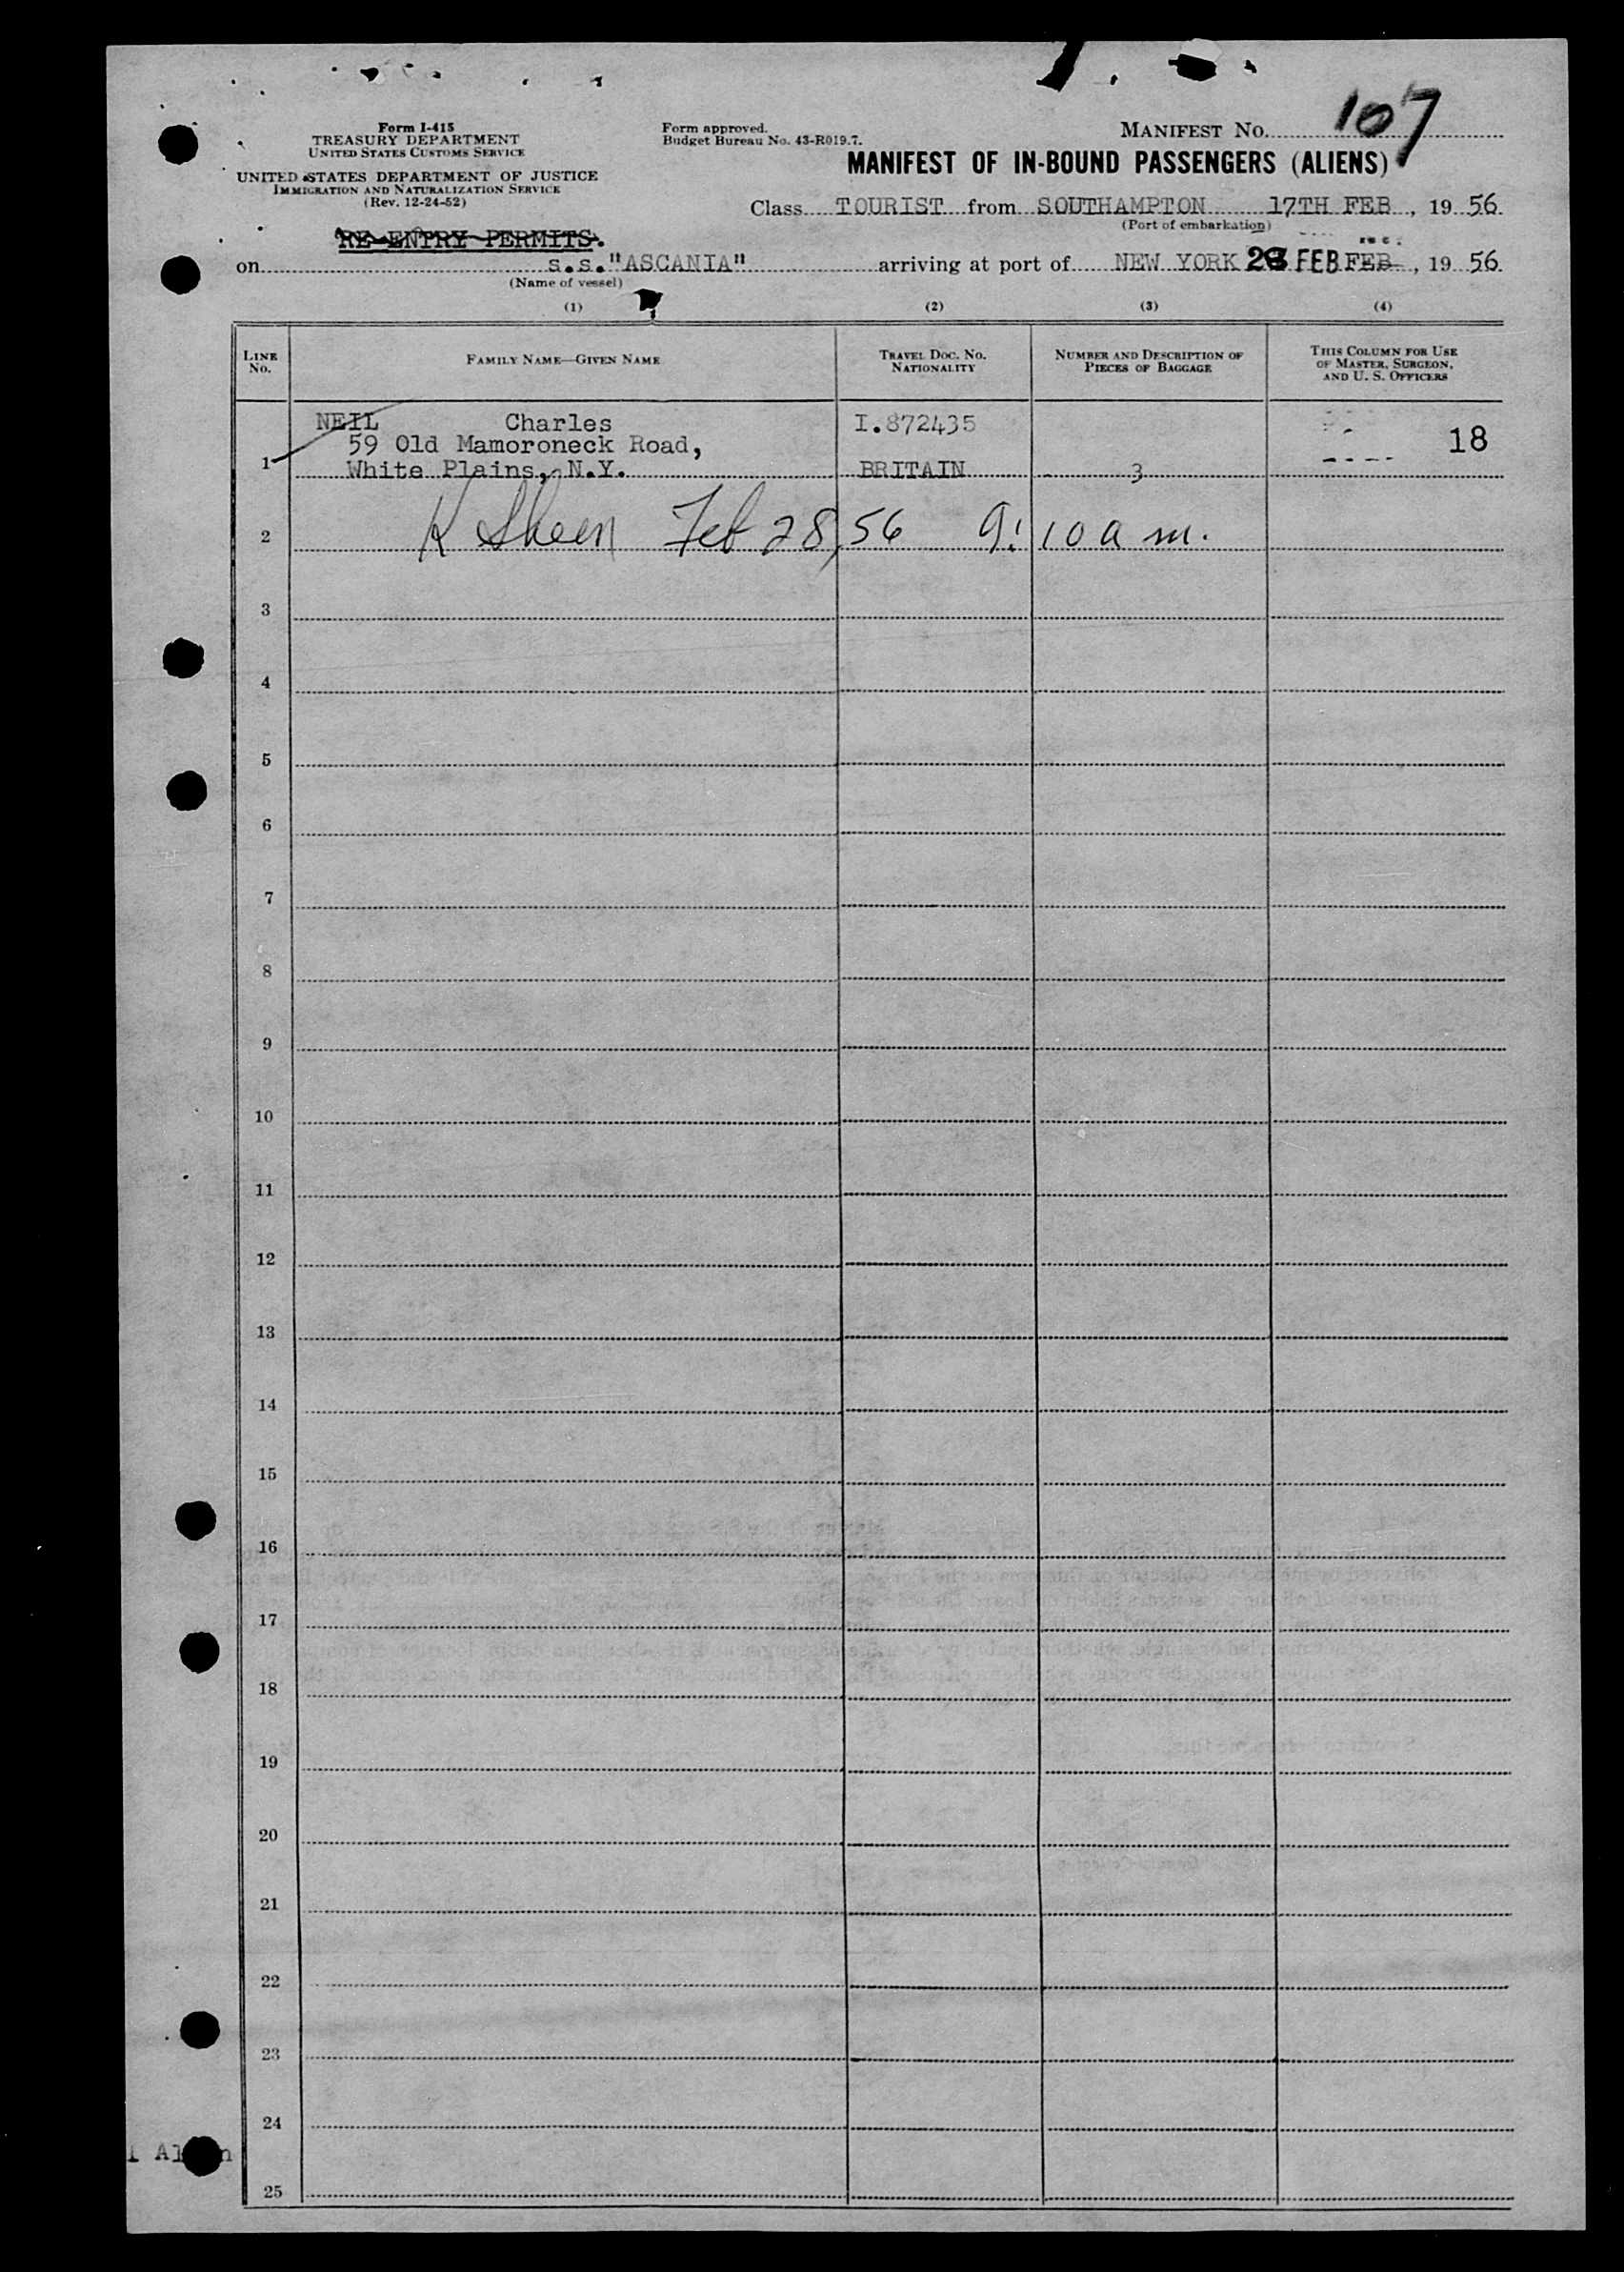 Form I-415
TREASURY DEPARTMENT
UNITED STATES CUSTOMS SERVICE
UNITED STATES DEPARTMENT OF JUSTICE
IMMIGRATION AND NATURALIZATION SERVICE
(Rev. 12-24-52)
Form approved.
Budget Bureau No. 43-R019.7.
MANIFEST NO. 107
MANIFEST OF IN-BOUND PASSENGERS (ALIENS)
Class TOURIST from SOUTHAMPTON 17TH FEB, 19 56
(Port of embarkation)
RE-ENTRY PERMITS.
on s.s."ASCANIA" arriving at port of NEW YORK 28 FEB FEB, 19 56
(Name of vessel)
(1) (2) (3) (4)
LINE NO. FAMILY NAME—GIVEN NAME TRAVEL DOC. NO. NATIONALITY NUMBER AND DESCRIPTION OF PIECES OF BAGGAGE THIS COLUMN FOR USE OF MASTER, SURGEON, AND U. S. OFFICERS
NEIL Charles I.872435
59 Old Mamoroneck Road, 18
1 White Plains, N.Y. BRITAIN 3
2 K Sheen Feb 28, 56 9:10 a m.
3
4
5
6
7
8
9
10
11
12
13
14
15
16
17
18
19
20
21
22
23
24
25